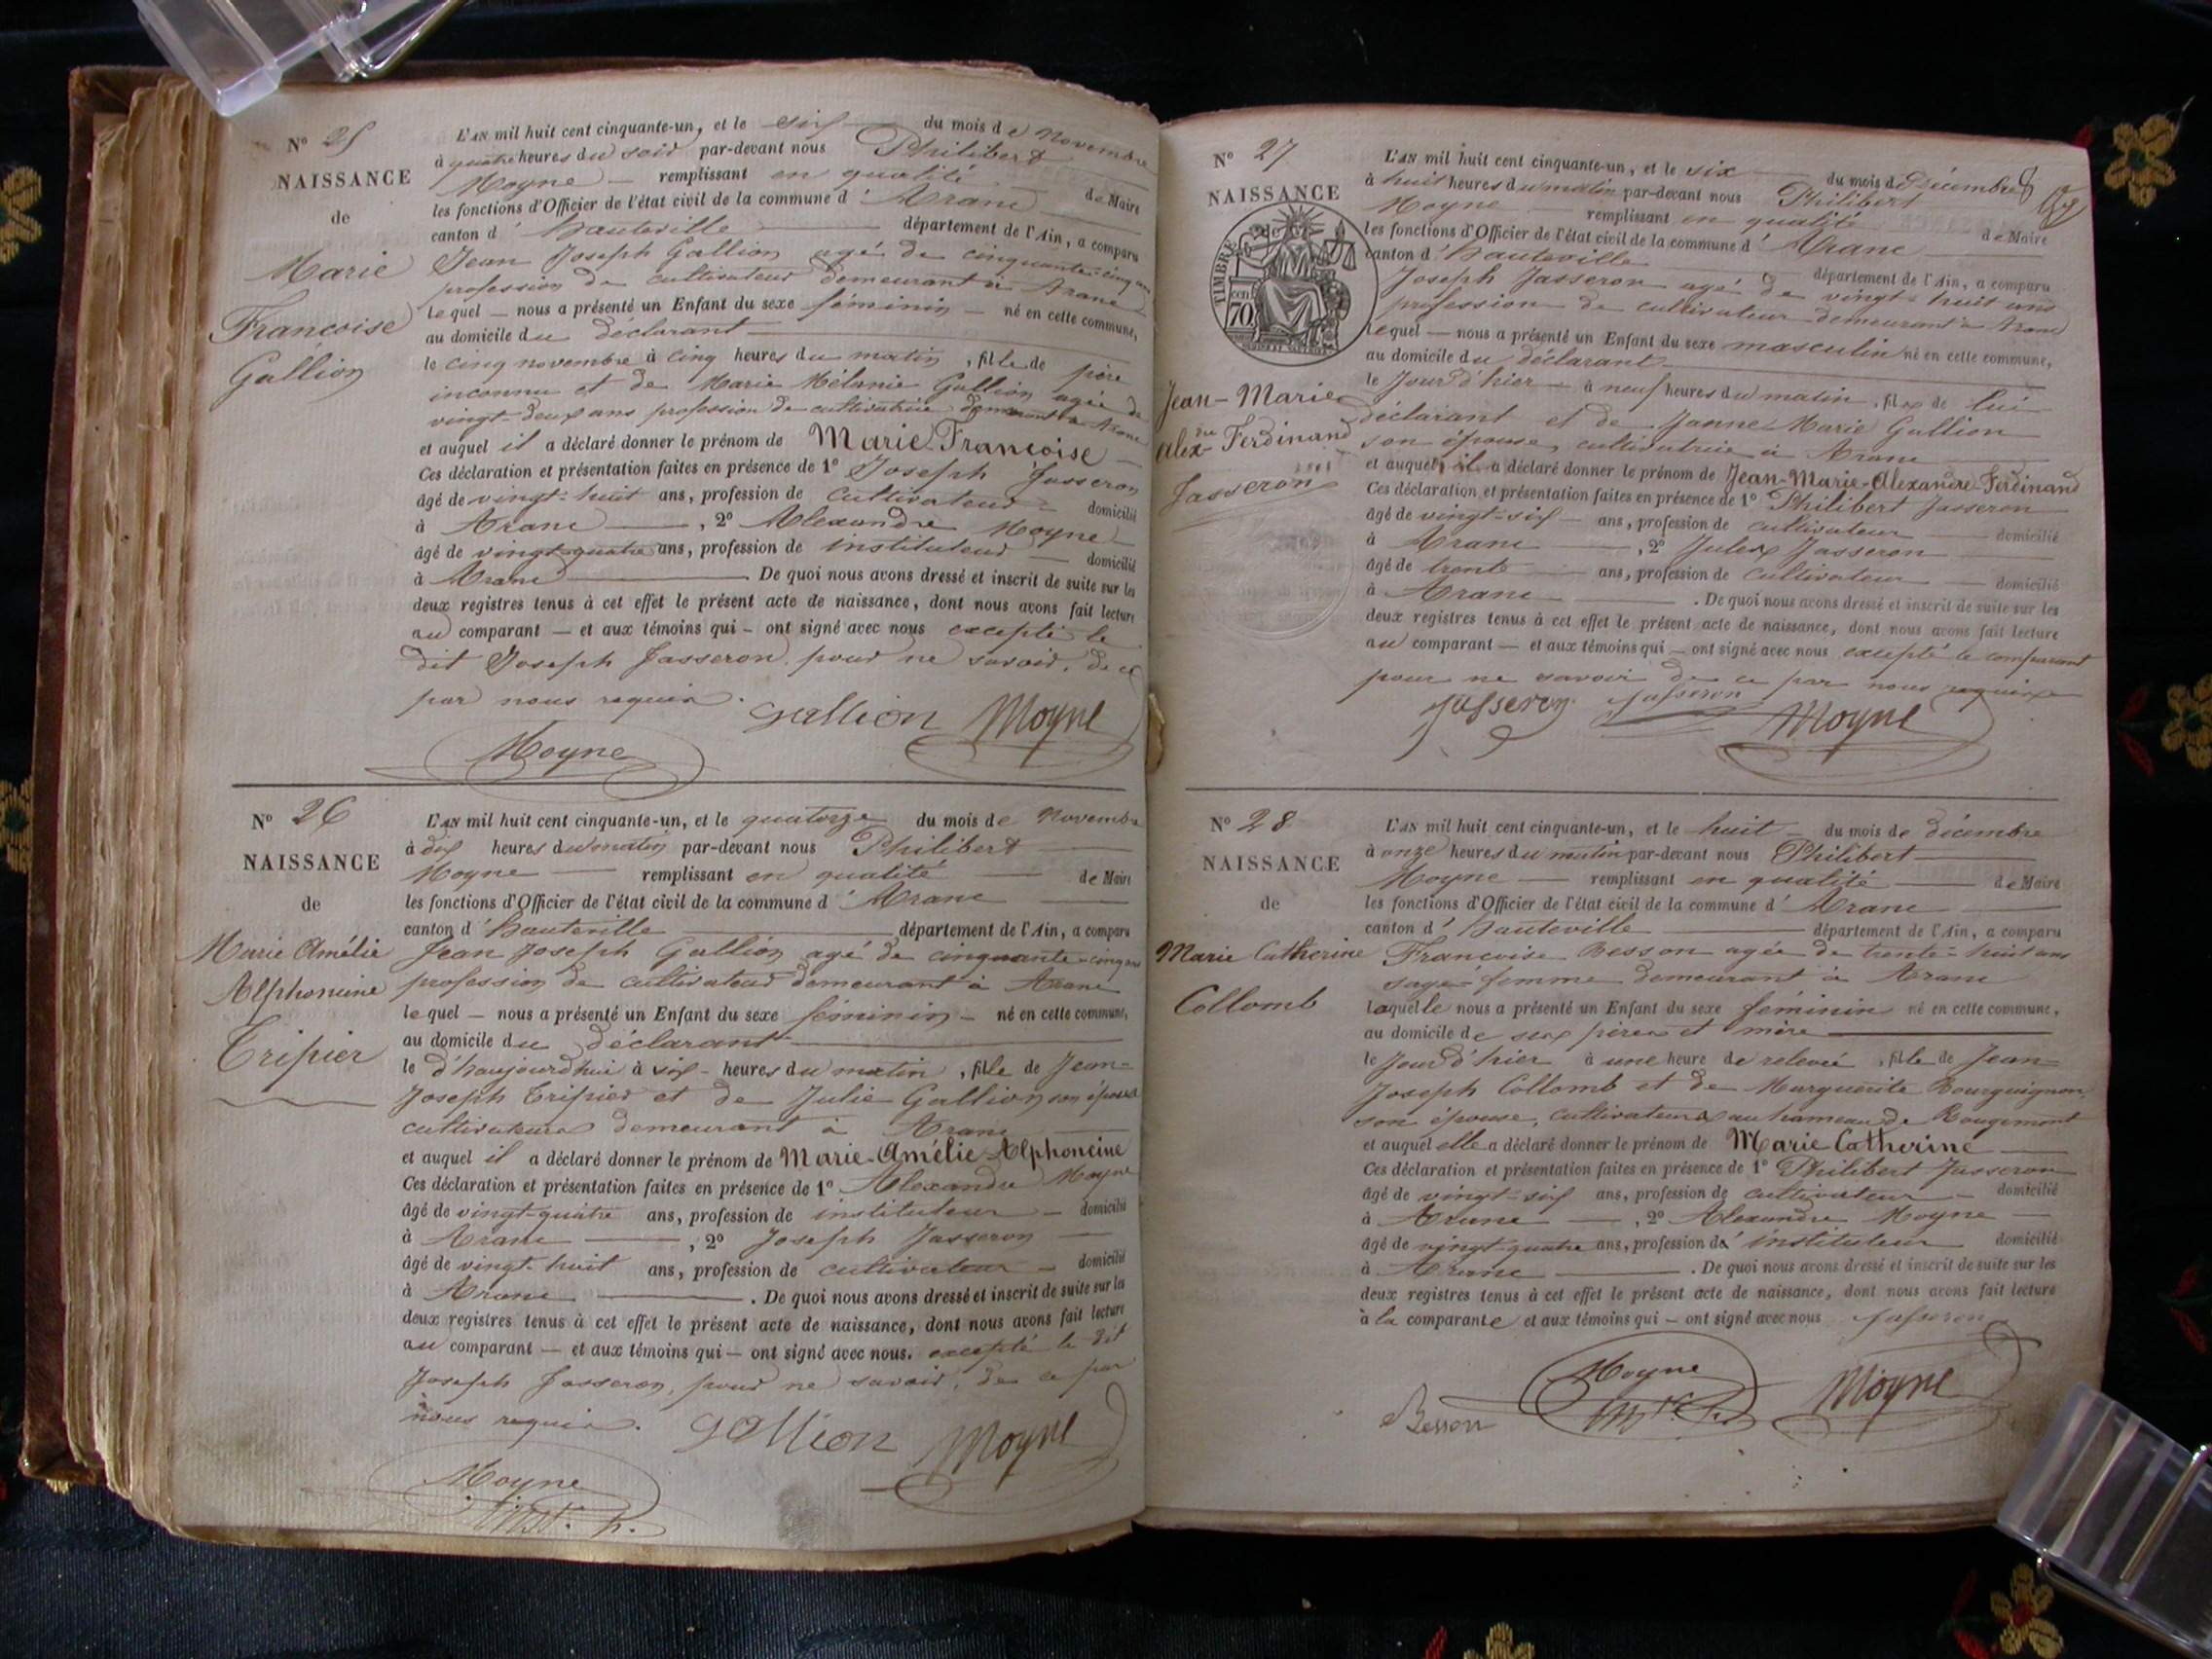 Nº 25
NAISSANCE
de
Marie
Françoise
Gallion
L'AN mil huit cent cinquante-un, et le six du mois de Novembre
à quatre heures du soir par-devant nous Philibert
Moyne remplissant en qualité de Maire
les fonctions d'Officier de l'état civil de la commune d' Aranc
canton d' hauteville département de l'Ain, a comparu
Jean Joseph Gallion agé de cinquante-cinq ans
profession de cultivateur demeurant à Aranc
lequel nous a présenté un Enfant du sexe féminin né en cette commune,
au domicile du déclarant
le cinq novembre à cinq heures du matin, fille de père
inconnu et de Marie Mélanie Gallion agée de
vingt-deux ans profession de cultivatrice demeurant à Aranc
et auquel il a déclaré donner le prénom de Marie Françoise
Ces déclaration et présentation faites en présence de 1º Joseph Jasseron
âgé de vingt-huit ans, profession de cultivateur domicilié
à Aranc, 2º Alexandre Moyne
âgé de vingt-quatre ans, profession de instituteur domicilié
à Aranc De quoi nous avons dressé et inscrit de suite sur les
deux registres tenus à cet effet le présent acte de naissance, dont nous avons fait lecture
au comparant — et aux témoins qui — ont signé avec nous excepté le
dit Joseph Jasseron pour ne savoir, de ce
par nous requis.
gallion Moyne
Moyne
Nº 26
NAISSANCE
de
Marie Amélie
Alphonsine
Tripier
L'AN mil huit cent cinquante-un, et le quatorze du mois de Novembre
à dix heures du matin par-devant nous Philibert
Moyne remplissant en qualité de Maire
les fonctions d'Officier de l'état civil de la commune d' Aranc
canton d' hauteville département de l'Ain, a comparu
Jean Joseph Gallion agé de cinquante-cinq ans
profession de cultivateur demeurant à Aranc
lequel — nous a présenté un Enfant du sexe féminin — né en cette commune,
au domicile du déclarant
le d'haujourdhui à six heures du matin, fille de Jean-
Joseph Tripier et de Julie Gallion son épouse
cultivateurs demeurant à Aranc
et auquel il a déclaré donner le prénom de Marie-Amélie Alphoncine
Ces déclaration et présentation faites en présence de 1º Alexandre Moyne
âgé de vingt-quatre ans, profession de instituteur domicilié
à Aranc, 2º Joseph Jasseron
âgé de vingt-huit ans, profession de cultivateur domicilié
à Aranc. De quoi nous avons dressé et inscrit de suite sur les
deux registres tenus à cet effet le présent acte de naissance, dont nous avons fait lecture
au comparant — et aux témoins qui — ont signé avec nous. excepté le dit
Joseph Jasseron, pour ne savoir, de ce par
nous requis. gallion Moyne
Moyne
inst. p.
Nº 27
NAISSANCE
TIMBRE
70
Jean-Marie
Alexdre Ferdinand
Jasseron
L'AN mil huit cent cinquante-un, et le six du mois de Décembre
à huit heures du matin par-devant nous Philibert
Moyne remplissant en qualité de Maire
les fonctions d'Officier de l'état civil de la commune d' Aranc
canton d' hauteville département de l'Ain, a comparu
Joseph Jasseron agé de vingt-huit ans
profession de cultivateur demeurant à Aranc
lequel — nous a présenté un Enfant du sexe masculin né en cette commune,
au domicile du déclarant
le jour d'hier à neuf heures du matin, fils de lui
déclarant et de Janne Marie Gallion
son épouse, cultivatrice à Aranc
et auquel il a déclaré donner le prénom de Jean-Marie-Alexandre Ferdinand
Ces déclaration et présentation faites en présence de 1º Philibert Jasseron
âgé de vingt-six ans, profession de cultivateur domicilié
à Aranc, 2º Jules Jasseron
âgé de trente ans, profession de cultivateur domicilié
à Aranc. De quoi nous avons dressé et inscrit de suite sur les
deux registres tenus à cet effet le présent acte de naissance, dont nous avons fait lecture
au comparant — et aux témoins qui — ont signé avec nous excepté le comparant
pour ne savoir de ce par nous requis
jasseron Jasseron Moyne
Nº 28
NAISSANCE
de
Marie Catherine
Collomb
L'AN mil huit cent cinquante-un, et le huit du mois de décembre
à onze heures du matin par-devant nous Philibert
Moyne remplissant en qualité de Maire
les fonctions d'Officier de l'état civil de la commune d' Aranc
canton d' hauteville département de l'Ain, a comparu
Françoise Besson agée de trente-huit ans
sage-femme demeurant à Aranc
laquelle nous a présenté un Enfant du sexe féminin né en cette commune,
au domicile de ses père et mère
le jour d'hier à une heure de relevée, fille de Jean-
Joseph Collomb et de Marguerite Bourguignon
son épouse, cultivateurs au hameau de Rougemont
et auquel elle a déclaré donner le prénom de Marie Catherine
Ces déclaration et présentation faites en présence de 1º Philibert Jasseron
âgé de vingt-six ans, profession de cultivateur domicilié
à Aranc, 2º Alexandre Moyne
âgé de vingt-quatre ans, profession d' instituteur domicilié
à Aranc. De quoi nous avons dressé et inscrit de suite sur les
deux registres tenus à cet effet le présent acte de naissance, dont nous avons fait lecture
à la comparante et aux témoins qui — ont signé avec nous Jasseron
Besson Moyne Moyne